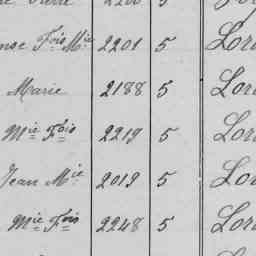 Fois Mie 2201 5 Lor
Marie 2188 5 Lor
Mie Fois 2219 5 Lor
Jean Mie 2019 5 Lor
Mie Fois 2248 5 Lor